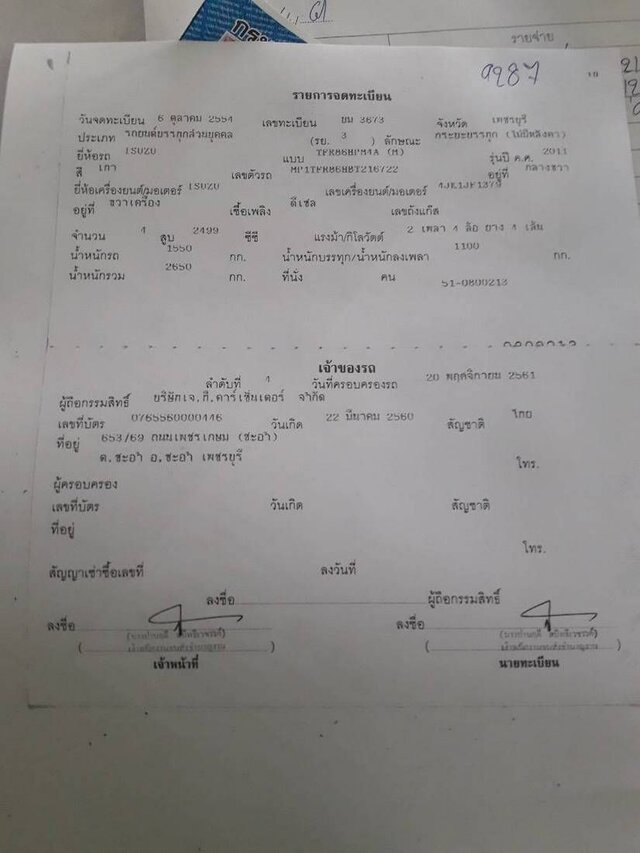 รายจ่าย
9287
รายการจดทะเบียน
วันจดทะเบียน 6 ตุลาคม 2554 เลขทะเบียน ยม 3673 จังหวัด เพชรบุรี
ประเภท รถยนต์บรรทุกส่วนบุคคล (รย. 3 ) ลักษณะ กระบะบรรทุก (ไม่มีหลังคา)
ยี่ห้อรถ ISUZU แบบ TFR86HPM4A (M) รุ่นปี ค.ศ. 2011
สี เทา เลขตัวรถ MP1TFR86HBT216722 อยู่ที่ กลางขวา
ยี่ห้อเครื่องยนต์/มอเตอร์ ISUZU เลขเครื่องยนต์/มอเตอร์ 4JK1JF1379
อยู่ที่ ขวาเครื่อง เชื้อเพลิง ดีเซล เลขถังแก๊ส
จำนวน 4 สูบ 2499 ซีซี แรงม้า/กิโลวัตต์ 2 เพลา 4 ล้อ ยาง 4 เส้น
น้ำหนักรถ 1550 กก. น้ำหนักบรรทุก/น้ำหนักลงเพลา 1100 กก.
น้ำหนักรวม 2650 กก. ที่นั่ง คน 51-0800213
เจ้าของรถ
ลำดับที่ 4 วันที่ครอบครองรถ 20 พฤศจิกายน 2561
ผู้ถือกรรมสิทธิ์ บริษัทเจ.กี.คาร์เซ็นเตอร์ จำกัด
เลขที่บัตร 0765560000446 วันเกิด 22 มีนาคม 2560 สัญชาติ ไทย
ที่อยู่ 653/69 ถนนเพชรเกษม (ชะอำ)
ต.ชะอำ อ.ชะอำ เพชรบุรี โทร.
ผู้ครอบครอง
เลขที่บัตร วันเกิด สัญชาติ
ที่อยู่
โทร.
สัญญาเช่าซื้อเลขที่ ลงวันที่
ลงชื่อ ผู้ถือกรรมสิทธิ์
ลงชื่อ ลงชื่อ
เจ้าหน้าที่ นายทะเบียน